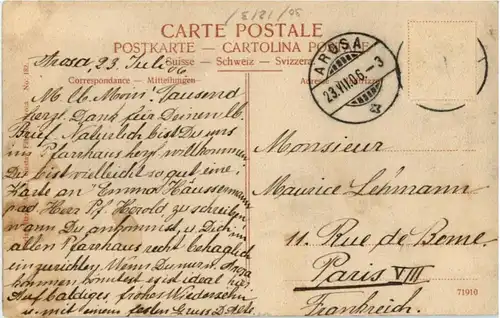 CARTE POSTALE
POSTKARTE - CARTOLINA POSTALE
Suisse - Schweiz - Svizzera
Correspondance - Mitteilungen
Arosa 23. Juli 06
M. lb. Moin. Tausend
herzl. Dank für Deinen lb.
Brief. Natürlich bist Du uns
im Pfarrhaus herzl. willkommen
Du bist vielleicht so gut eine
Karte an Emma Häussermann
pad Herr Pf. Herold, zu schreiben
wann Du ankommst, u. Dich in
allen Pfarrhaus recht behaglich
einzurichten. Wenn Du nur n. Arosa
kommen könntest es ist ideal hier
Auf baldiges, frohes Wiedersehn
u. mit einem festen Gruss D.
AROSA
23.VII.06.-3
Monsieur
Maurice Lehmann
11. Rue de Bome
Paris VIII
Frankreich.
71910